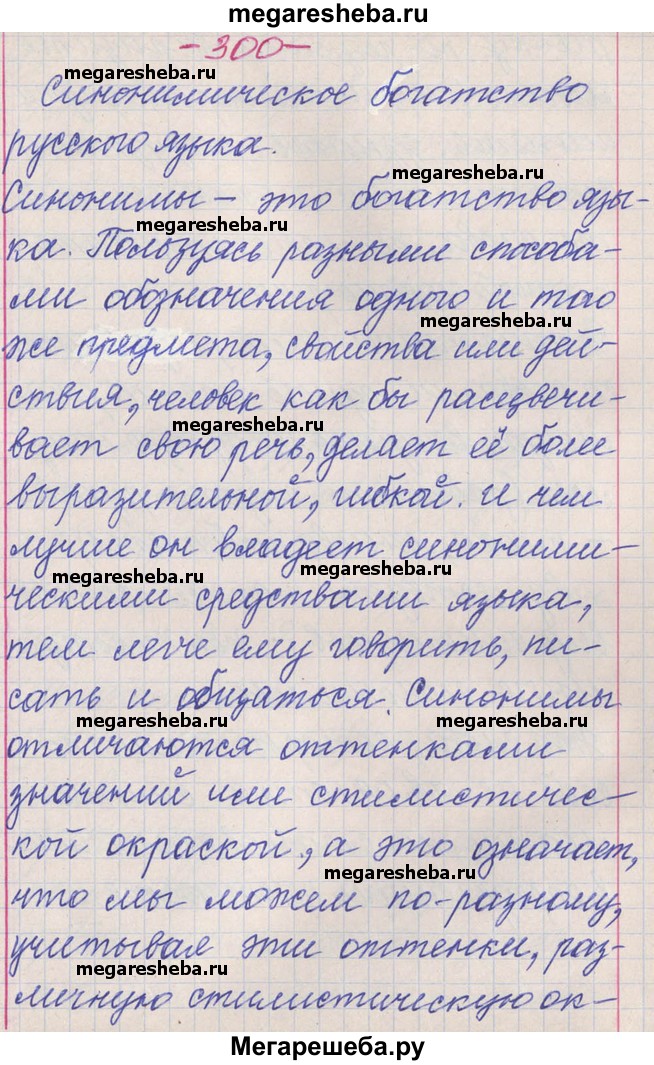 megaresheba.ru
-300-
megaresheba.ru
Синонимическое богатство
русского языка.
megaresheba.ru
Синонимы - это богатство язы-
megaresheba.ru
ка. Пользуясь разными способа-
ми обозначения одного и того
megaresheba.ru
же предмета, свойства или дей-
ствия, человек как бы расцвечи-
megaresheba.ru megaresheba.ru
вает свою речь, делает её более
выразительной, гибкой. И чем
лучше он владеет синоними-
megaresheba.ru megaresheba.ru
ческими средствами языка,
тем легче ему говорить, пи-
сать и общаться. Синонимы
megaresheba.ru megaresheba.ru
отличаются оттенками
значений или стилистичес-
кой окраской, а это означает,
megaresheba.ru
что мы можем по-разному,
учитывая эти оттенки, раз-
megaresheba.ru
личную стилистическую ок-
Мегарешеба.ру